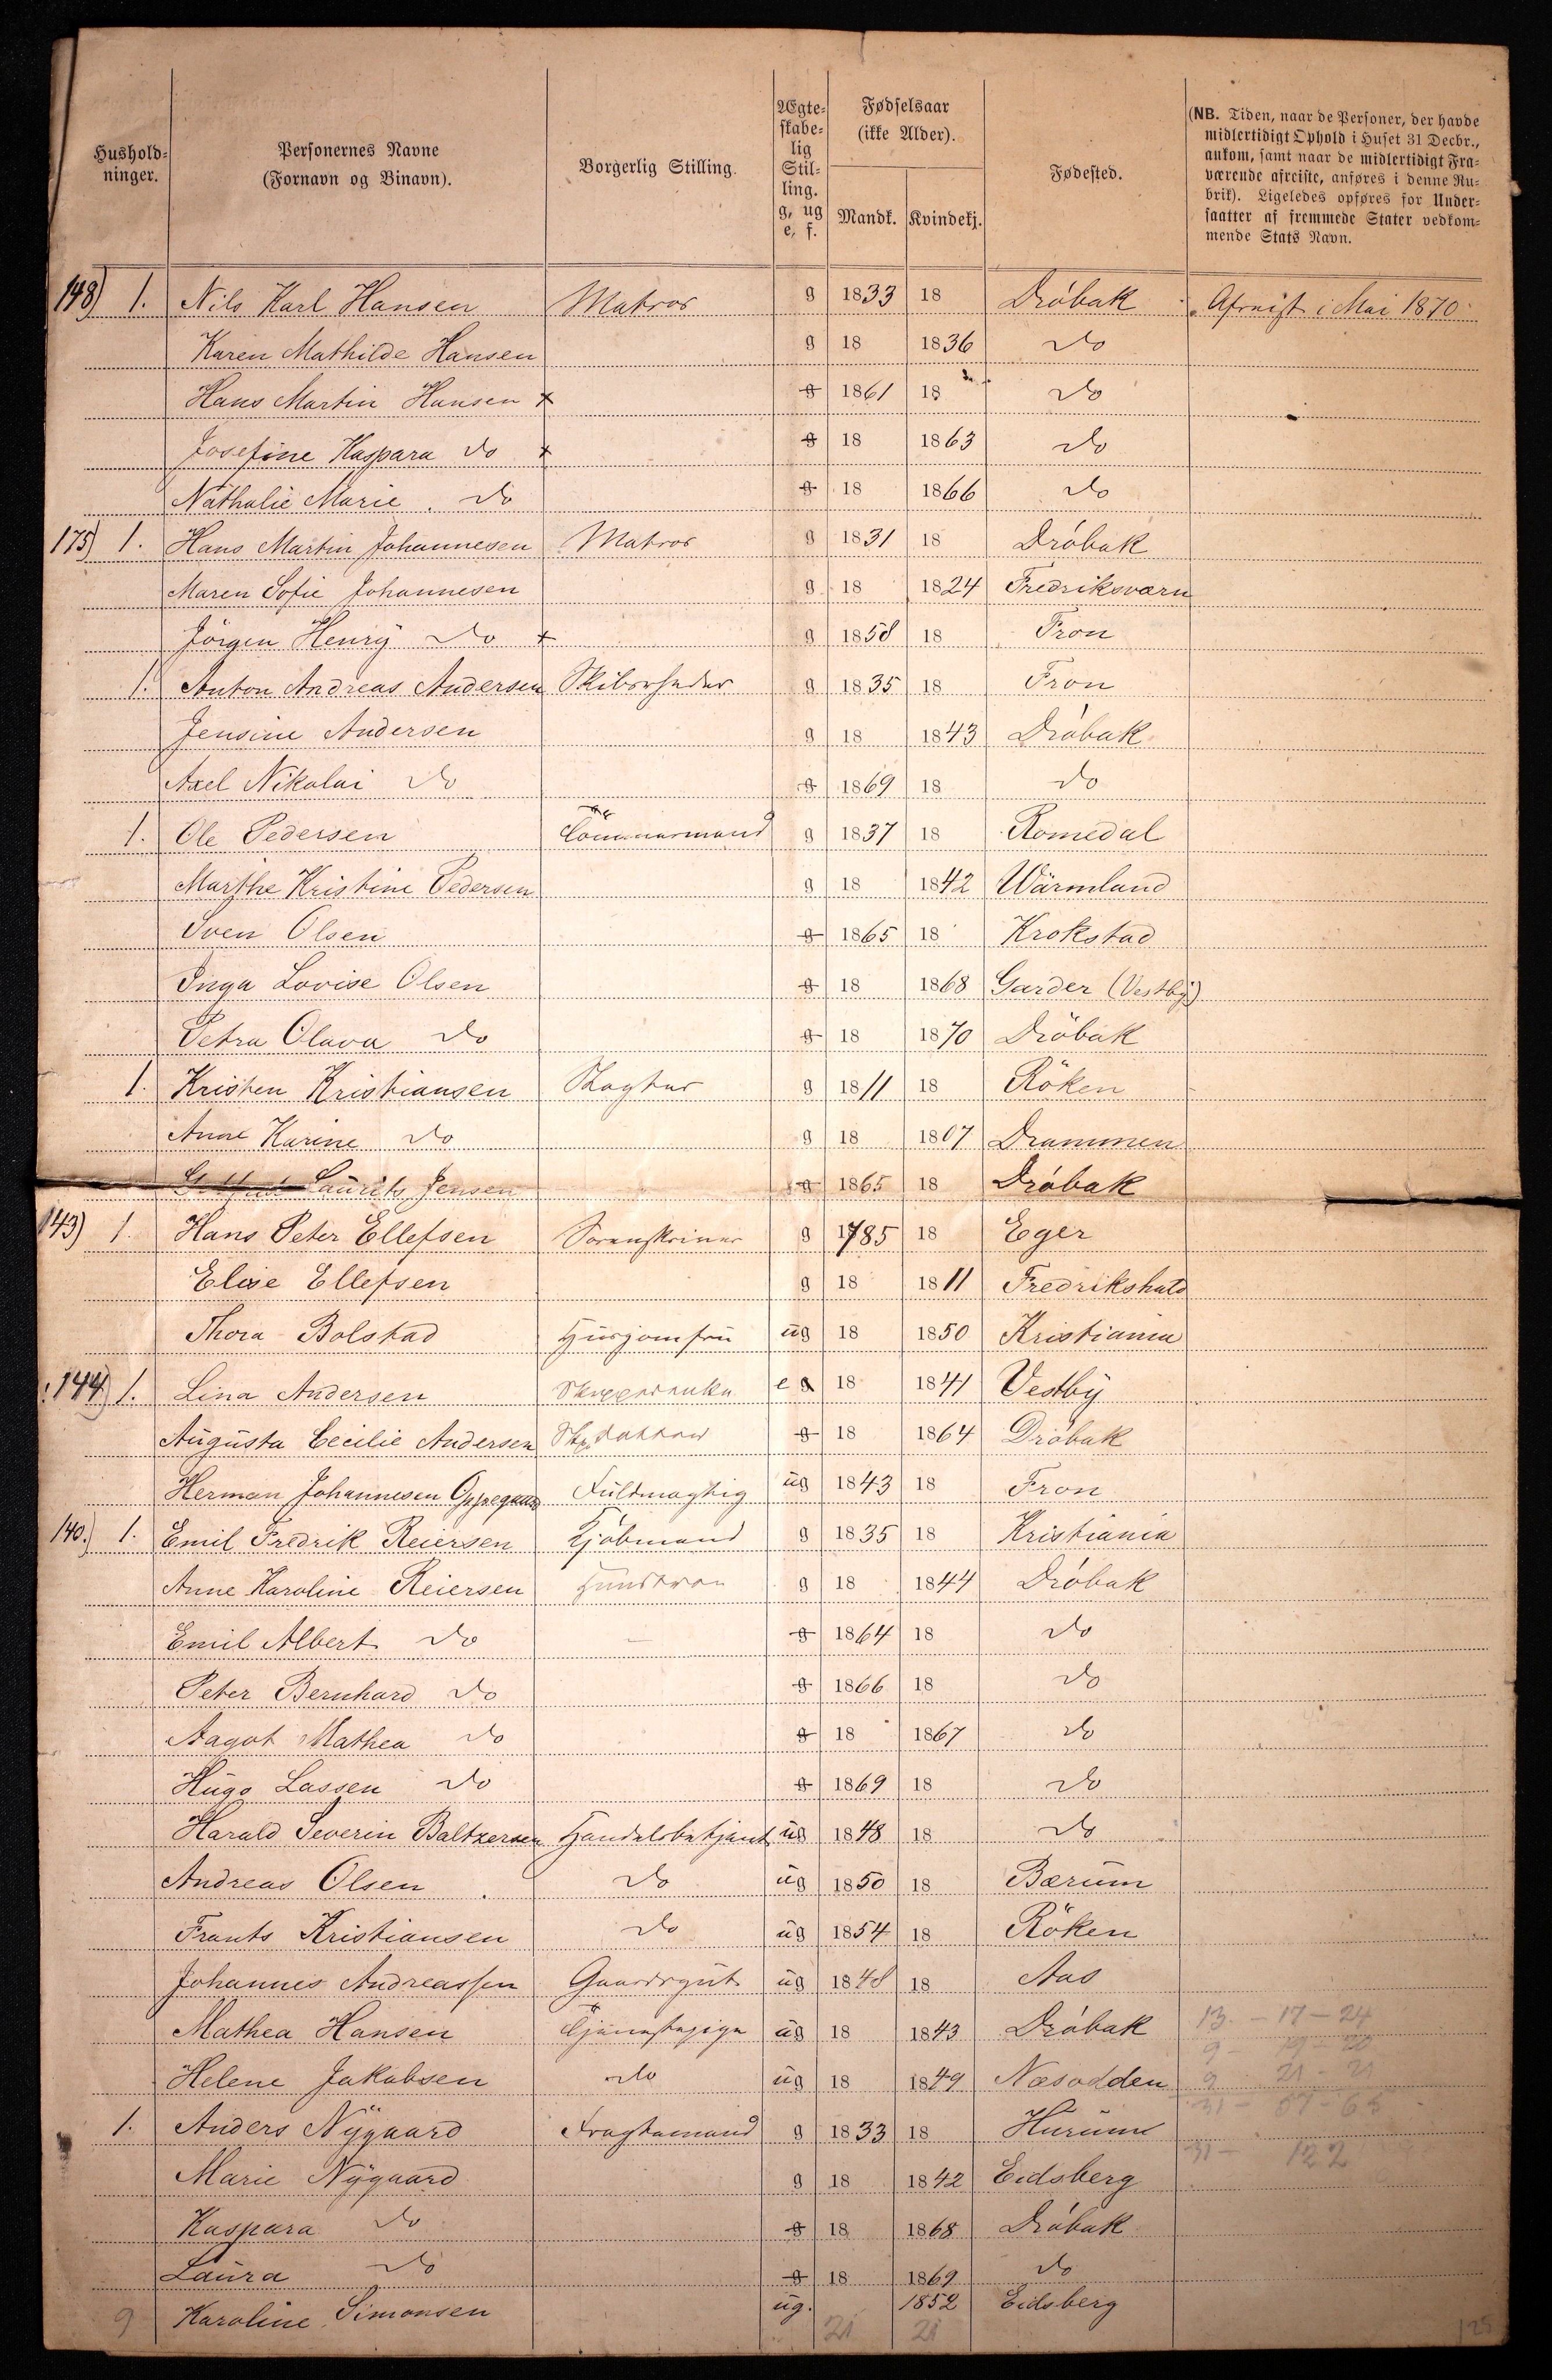 Hushold-
ninger.
Personernes Navne
(Fornavn og Binavn).
Borgerlig Stilling.
Ægte-
skabe-
lig
Stil-
ling.
g, ug
e, f.
Fødselsaar
(ikke Alder).
Mandk.
Kvindekj.
Fødested.
(NB. Tiden, naar de Personer, der havde
midlertidigt Ophold i Huset 31 Decbr.,
ankom, samt naar de midlertidigt Fra-
værende afreiste, anføres i denne Ru-
brik). Ligeledes opføres for Under-
saatter af fremmede Stater vedkom-
mende Stats Navn.
148) 1. Nils Karl Hansen Matros g 1833 18 Dröbak Afreist i Mai 1870
Karen Mathilde Hansen g 18 1836 do
Hans Martin Hansen x g 1861 18 do
Josefine Kaspara do x g 18 1863 do
Nathalie Marie do g 18 1866 do
175) 1. Hans Martin Johannesen Matros g 1831 18 Dröbak
Maren Sofie Johannesen g 18 1824 Fredriksværn
Jörgen Henry do x g 1858 18 Fron
1. Anton Andreas Andersen Skibsreder g 1835 18 Fron
Jensine Andersen g 18 1843 Dröbak
Axel Nikolai do g 1869 18 do
1. Ole Pedersen Tömmermand g 1837 18 Romedal
Marthe Kristine Pedersen g 18 1842 Wärmland
Sven Olsen g 1865 18 Krokstad
Inga Lovise Olsen g 18 1868 Garder (Vestby)
Petra Olava do g 18 1870 Dröbak
1. Kristen Kristiansen Slagter g 1811 18 Röken
Anne Karine do g 18 1807 Drammen
Laurits Jensen g 1865 18 Dröbak
143) 1. Hans Peter Ellefsen Sorenskriver g 1785 18 Eger
Elise Ellefsen g 18 1811 Fredrikshald
Thora Bolstad Husjomfru ug 18 1850 Kristiania
144) 1. Lina Andersen Skipperenke e g 18 1841 Vestby
Augusta Cecilie Andersen g 18 1864 Dröbak
Herman Johannesen Oppegaard Fuldmægtig ug 1843 18 Fron
140.) 1. Emil Fredrik Reiersen Kjöbmand g 1835 18 Kristiania
Anne Karoline Reiersen g 18 1844 Dröbak
Emil Albert do g 1864 18 do
Peter Bernhard do g 1866 18 do
Aagot Mathea do g 18 1867 do
Hugo Lassen do g 1869 18 do
Harald Severin Baltzersen Handelsbetjent ug 1848 18 do
Andreas Olsen do ug 1850 18 Bærum
Frants Kristiansen do ug 1854 18 Röken
Johannes Andreassen Gaardsgut ug 1848 18 Aas
Mathea Hansen Tjenestepige ug 18 1843 Dröbak 13 - 17 - 24
Helene Jakobsen do ug 18 1849 Næsodden 9 21 - 21
1. Anders Nygaard Fragtemand g 1833 18 Hurum 31 - 57 - 65
Marie Nygaard g 18 1842 Eidsberg 31 - 122
Kaspara do g 18 1868 Dröbak
Laura do g 18 1869 do
9 Karoline Simonsen ug. 1852 Eidsberg
21 21